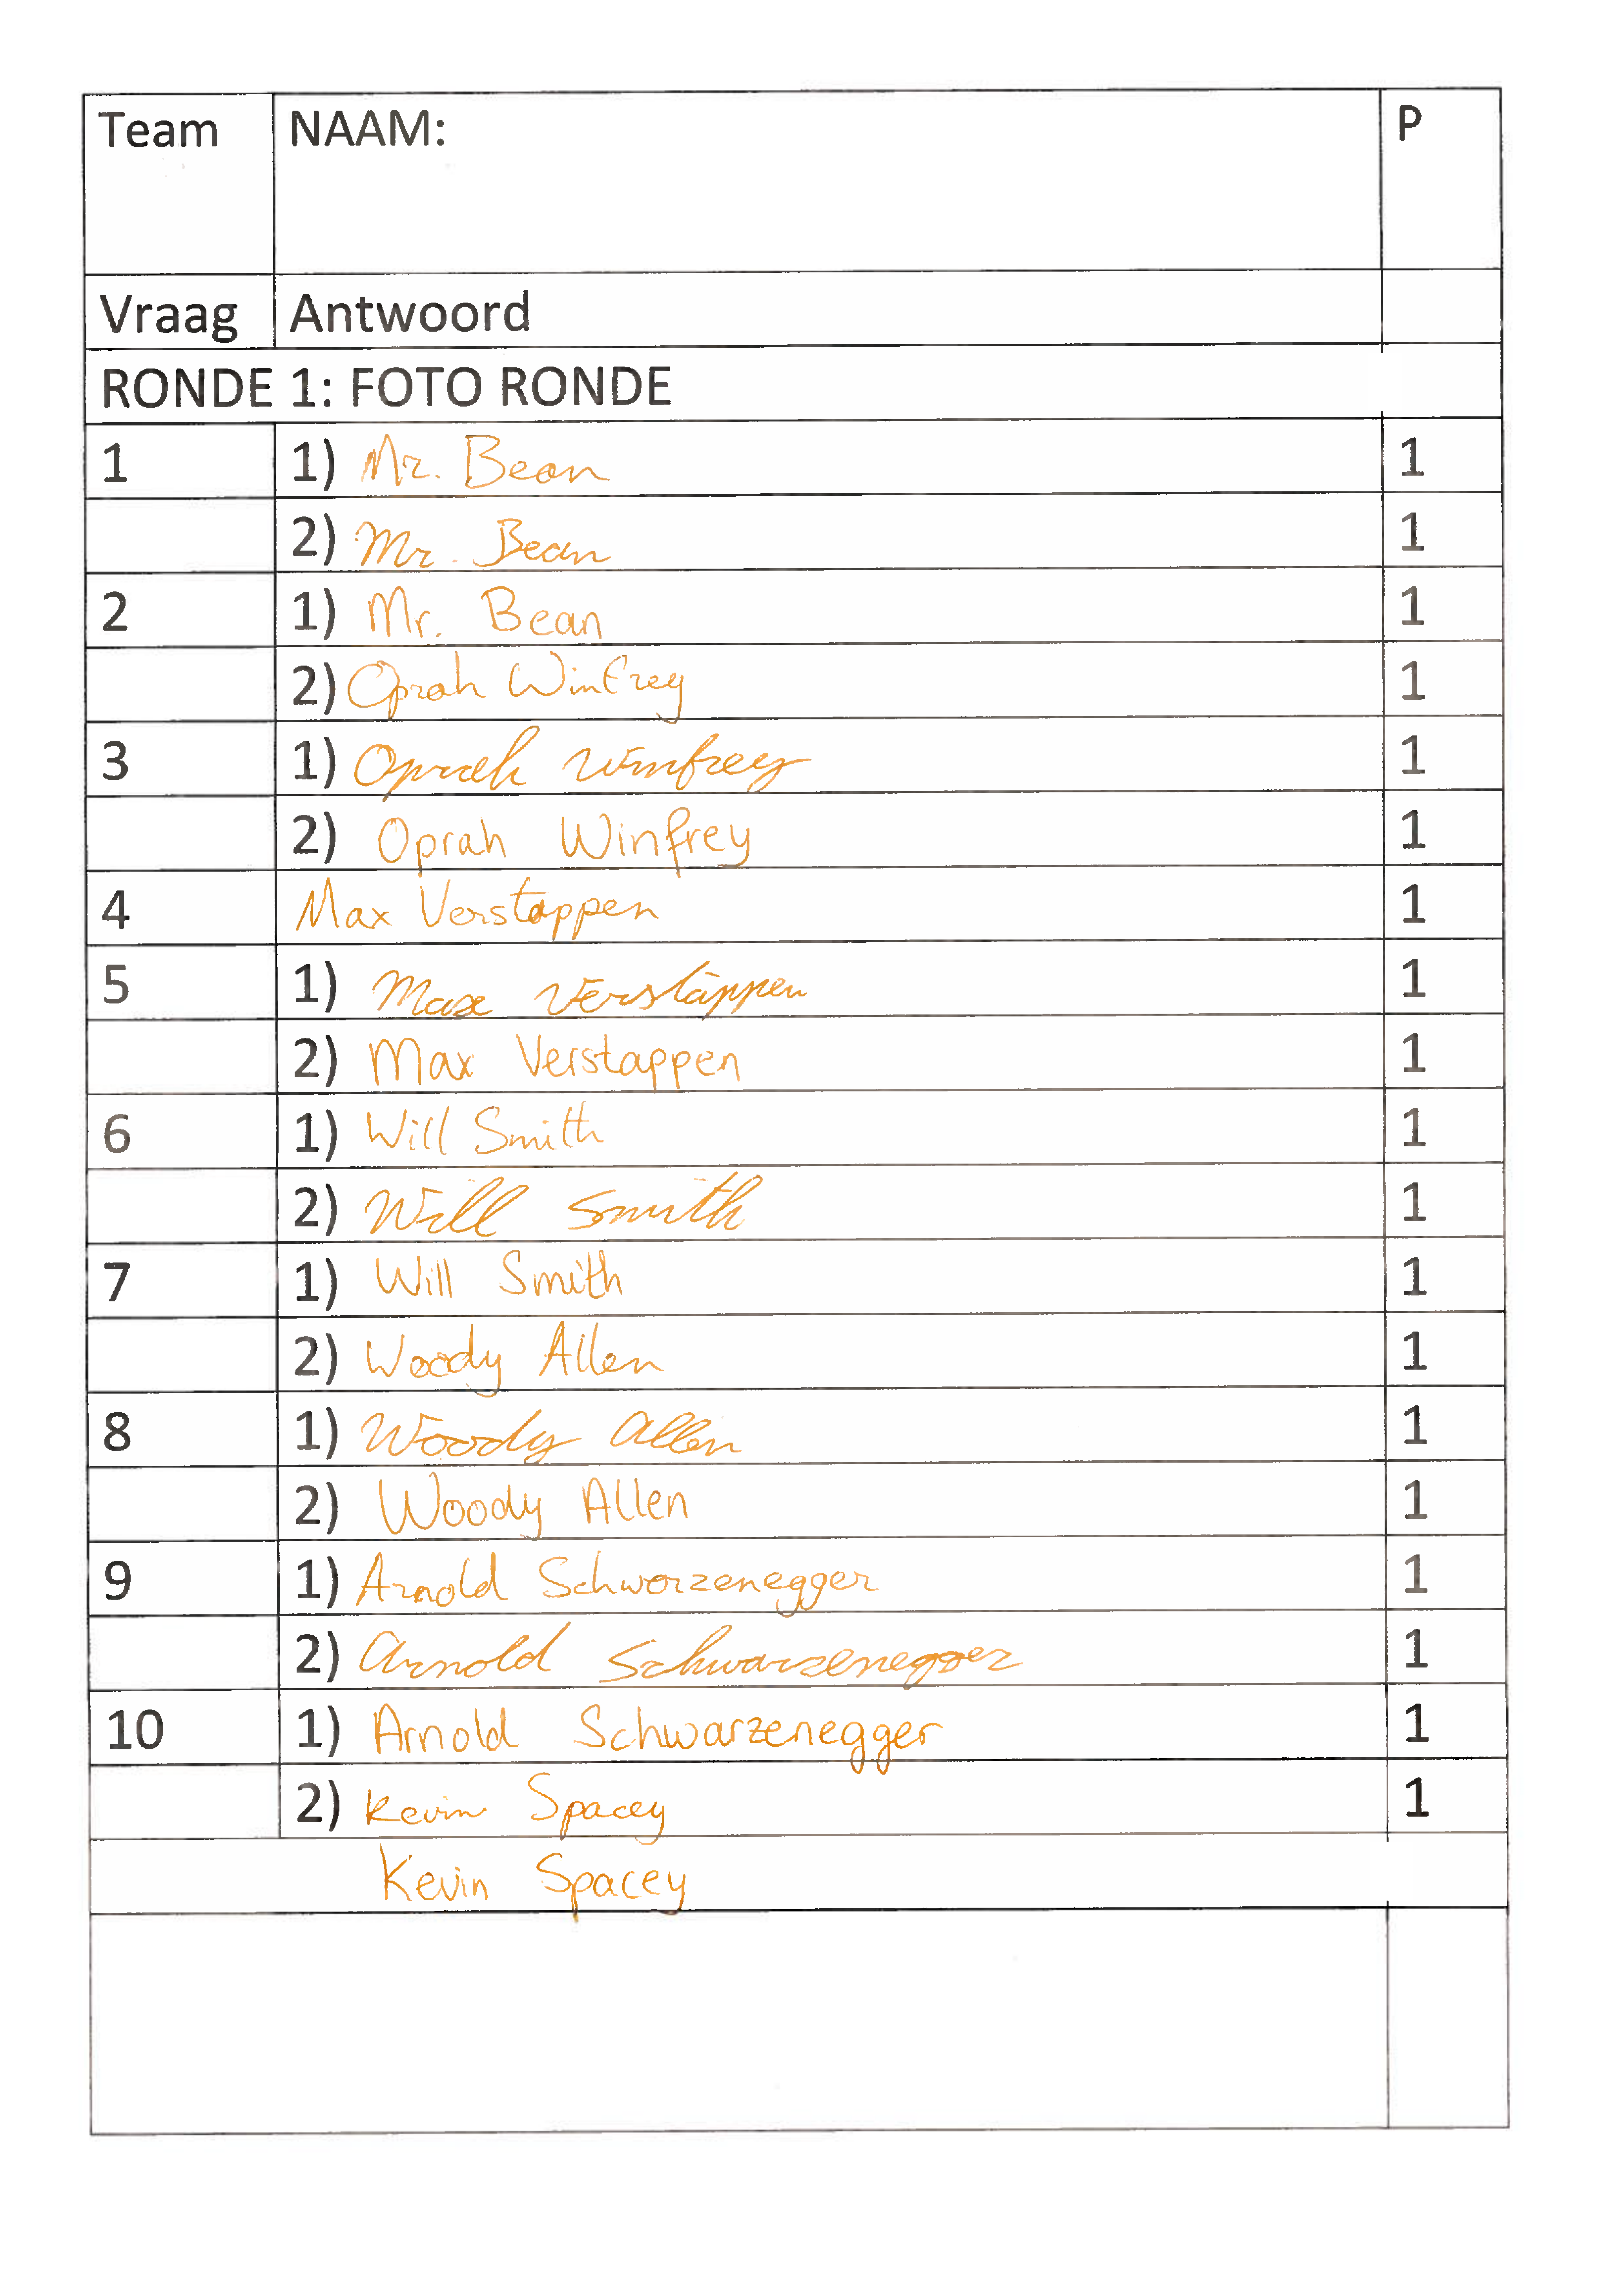 Team NAAM: P
Vraag Antwoord
RONDE 1: FOTO RONDE
1 1) Mr. Bean 1
2) Mr. Bean 1
2 1) Mr. Bean 1
2) Oprah Winfrey 1
3 1) Oprah Winfrey 1
2) Oprah Winfrey 1
4 Max Verstappen 1
5 1) Max Verstappen 1
2) Max Verstappen 1
6 1) Will Smith 1
2) Will Smith 1
7 1) Will Smith 1
2) Woody Allen 1
8 1) Woody Allen 1
2) Woody Allen 1
9 1) Arnold Schwarzenegger 1
2) Arnold Schwarzenegger 1
10 1) Arnold Schwarzenegger 1
2) Kevin Spacey 1
Kevin Spacey